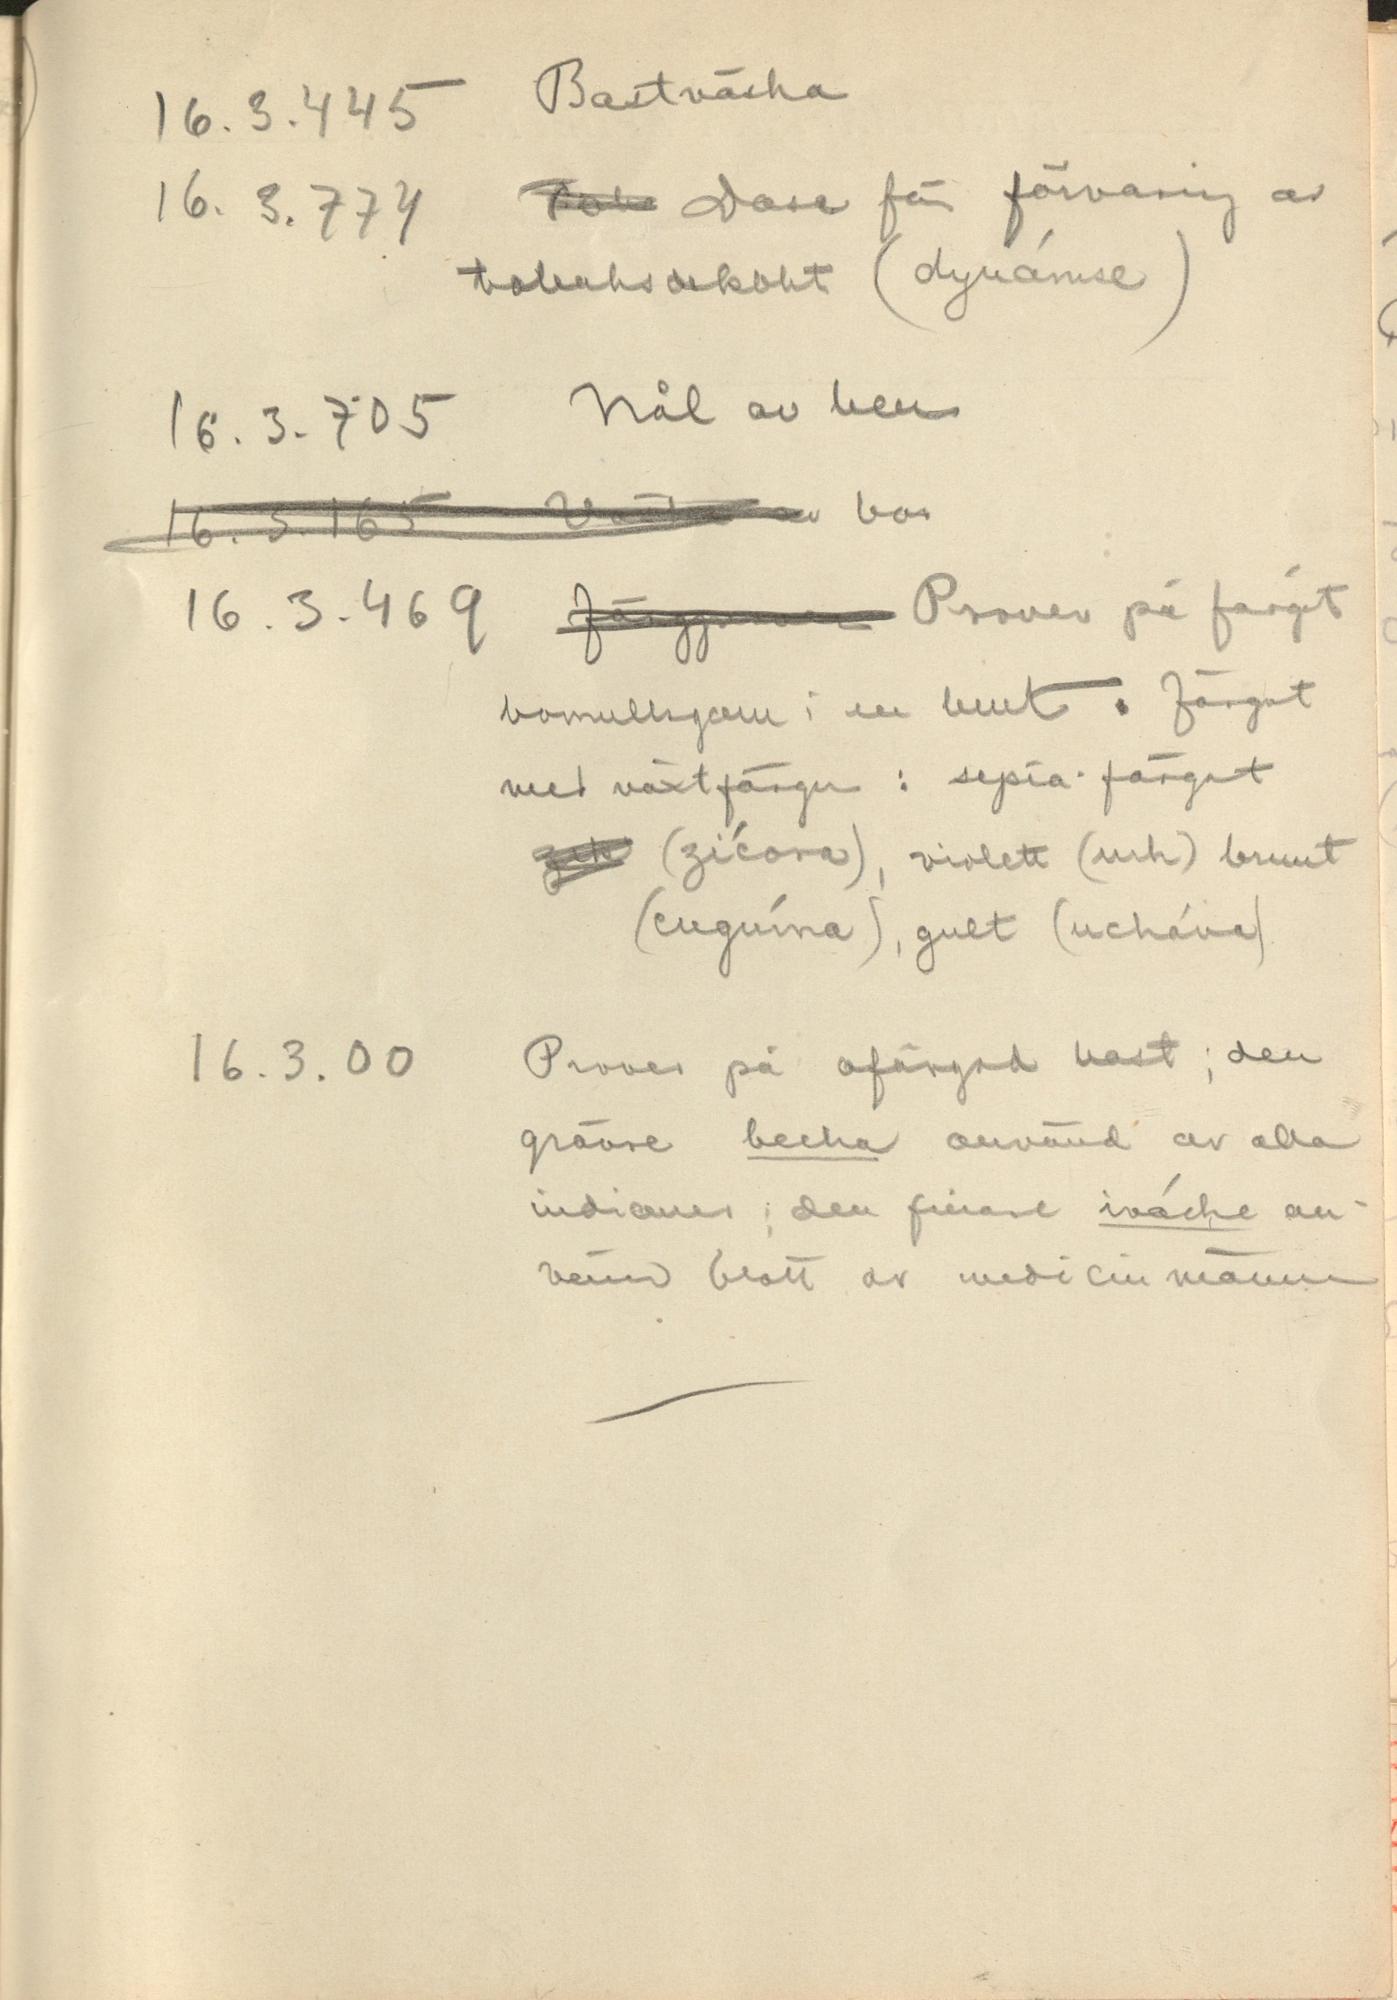 16.3.445 Bastväska
16.3.774 Dosa för förvaring av
tobaksdekokt (dynámse)
16.3.705 Nål av ben
16.3.165 Väska av bar
16.3.469 Färgprover Prover på färgat
bomullsgarn i en bunt. Färgat
med växtfärger: sepia-färgat
(zícora), violett (urh) brunt
(cuguína), gult (ucháva)
16.3.00 Prover på ofärgad bast; den
grövre becha använd av alla
indianer; den finare iváche an-
vänd blott av medicinmännen